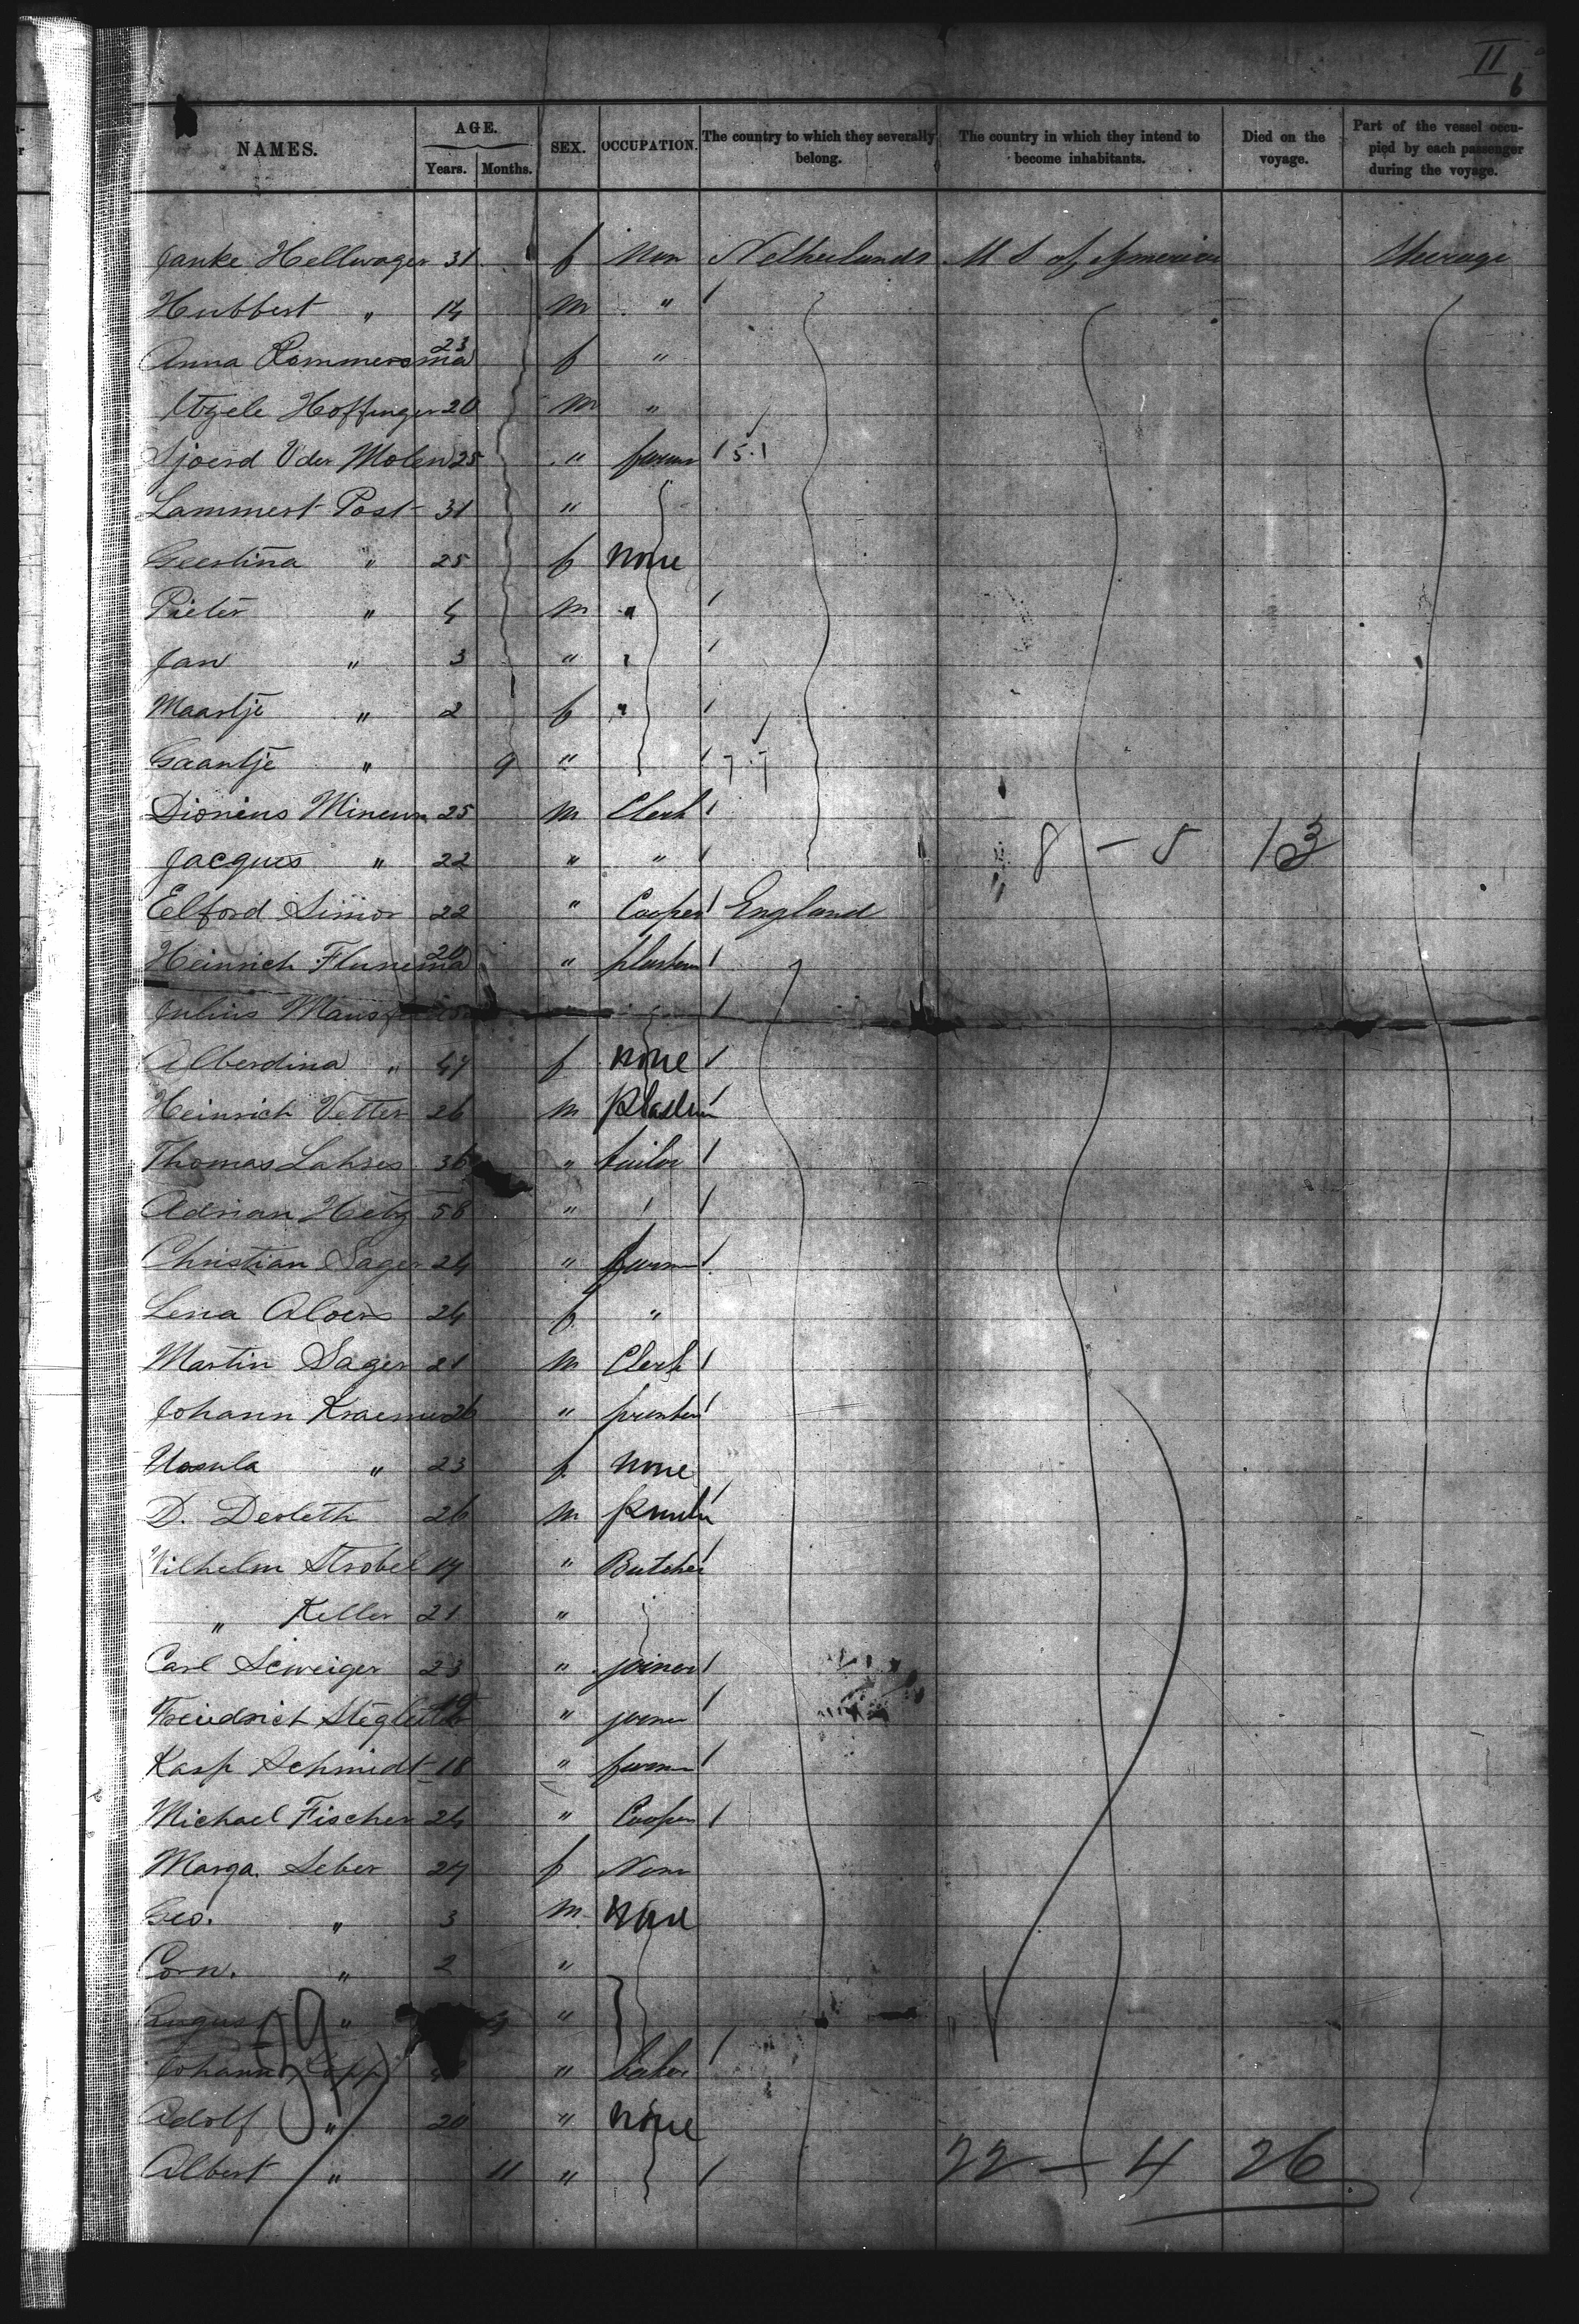 II
6
NAMES. AGE. Years. Months. SEX. OCCUPATION. The country to which they severally belong. The country in which they intend to become inhabitants. Died on the voyage. Part of the vessel occupied by each passenger during the voyage.
Janke Hellwager 31 f Non Netherlands U S of America Steerage
Hubbert " 14 m "
Anna Rommersma 23 f "
Hoffinger 20 m "
Sjoerd V der Molen 25 " farmer 5.1
Lammert Post 31 "
Geertina " 25 f none
Pieter " 4 m "
Jan " 3 " "
Maartje " 2 f "
Gaantje " 9 " 7.7
Dionius Mineur 25 m Clerk
Jacques " 22 " " 8 - 5 13
Eelford Simor 22 " Cooper England
Heinrich Flunema 20 "
Julius
Alberdina " 47 f none
Heinrich Vetter 26 m
Thomas Lahres 36 " tailor
Adrian Hetz 58 "
Christian Sager 24 " farmer
Lena Aloers 24 f "
Martin Sager 21 m Clerk
Johann Kraemer 26 " printer
Ursula " 23 f none
D. Derleth 26 m
Wilhelm Strobel 17 " Butcher
" Keller 21 "
Carl Scweiger 23 " joiner
Freidrich " joiner
Kasp Schmidt 18 " farmer
Michael Fischer 24 " Cooper
Marga. Seber 27 f Non
Geo. " 3 m None
Corn. " 2 "
August " "
Johann Kopp "
Adolf " 20 " none
Albert " 11 " 22 - 4 26
39